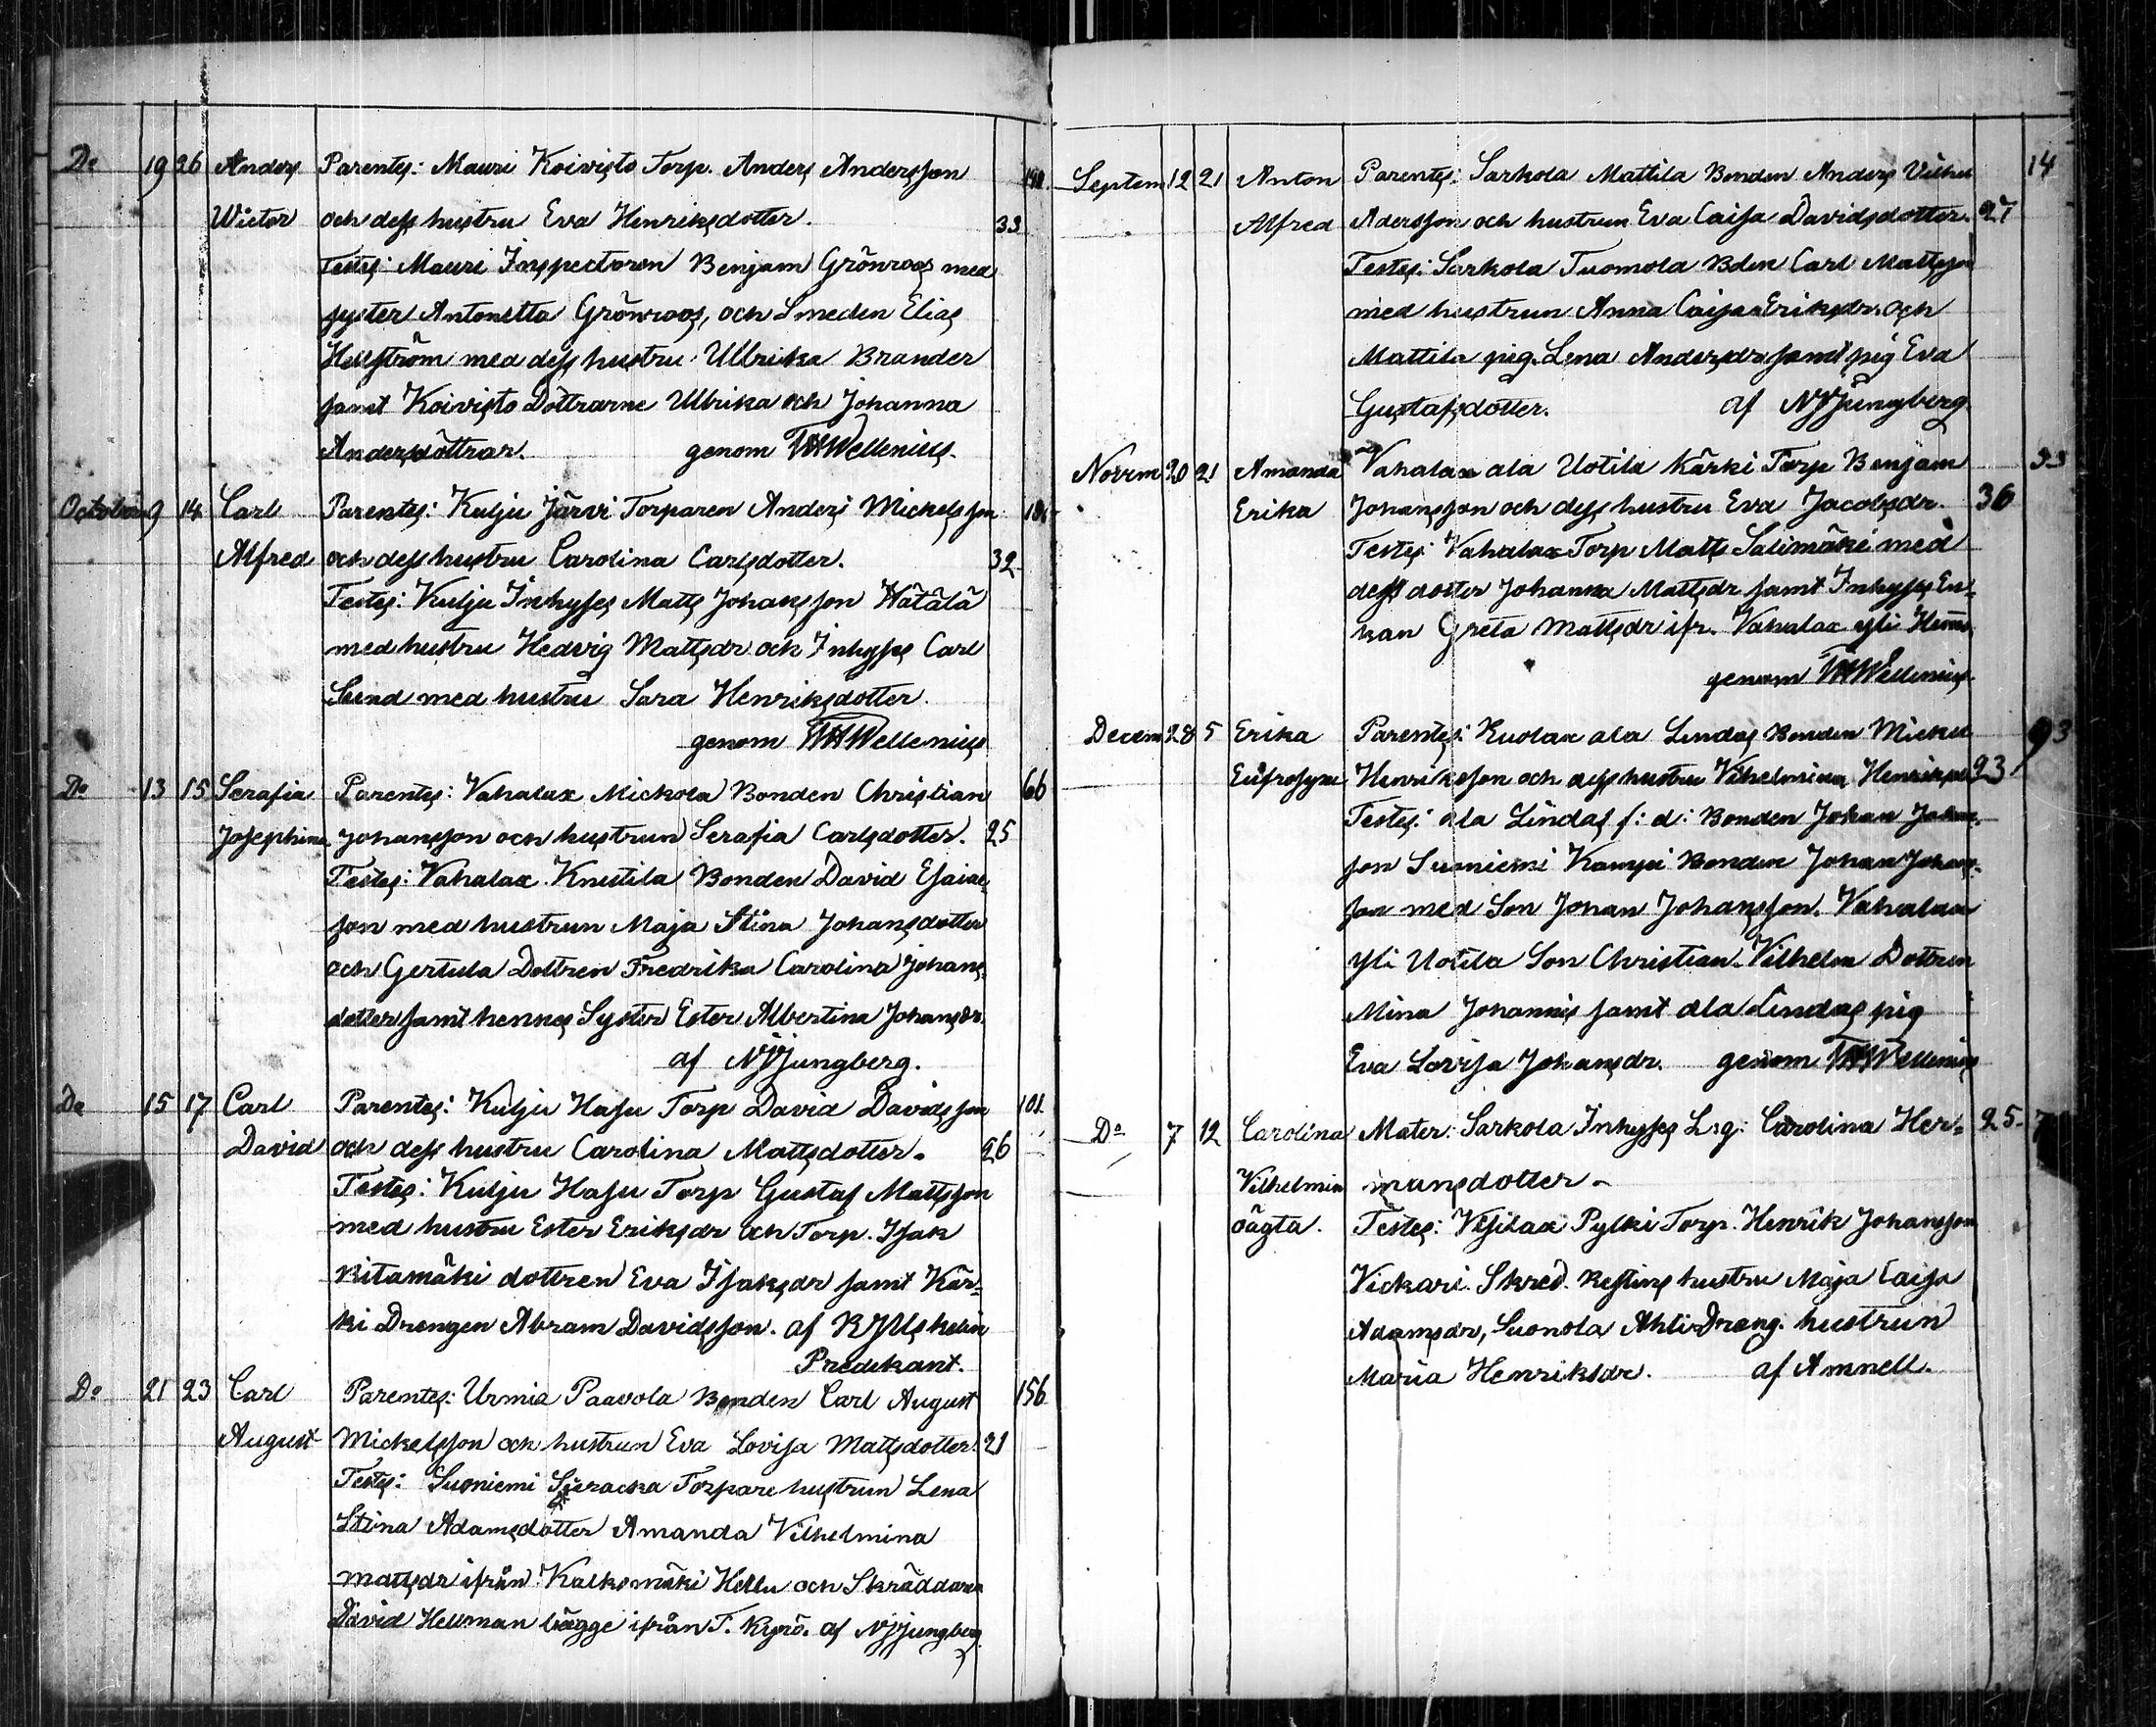 Do 19 26 Anders Parentes: Mauri Koivisto Torp. Anders Andersson
Wictor och dess hustru Eva Henriksdotter. 33
Testes: Mauri Inspectoren Benjam Grönroos med
syster Antonetta Grönroos, och Smeden Elias
Hellström med dess hustru Ullrika Brander
samt Koivisto Döttrarne Ullrika och Johanna
Andersdöttrar. genom Wellenius.
October 9 14 Carl Parentes: Kulju Järvi Torparen Anders Mickelsson
Alfred och dess hustru Carolina Carlsdotter. 32
Testes: Kulju Inhyses Matts Johansson Hätälä
med hustru Hedvig Mattsdr och Inhyses Carl
Lund med hustru Sara Henriksdotter.
genom Wellenius
Do 13 15 Serafia Parentes: Vahalax Mickola Bonden Christian 66
Josephina Johansson och hustrun Serafia Carlsdotter. 25
Testes: Vahalax Knutila Bonden David Esaias
son med hustrun Maja Stina Johansdotter
och Gertula Dottren Fredrika Carolina Johans
dotter samt hennes Syster Ester Albertina Johansdr.
af Ljungberg.
Do 15 17 Carl Parentes: Kulju Hasu Torp David Davidsson 101
David och dess hustru Carolina Mattsdotter. 26
Testes: Kulju Hasu Torp Gustaf Mattsson
med hustru Ester Eriksdr och Torp. Isak
Ritamäki dottren Eva Isaksdr samt Kär-
ki Drengen Abram Davidsson. af Uskelin
Predikant.
Do 21 23 Carl Parentes: Urmia Paavola Bonden Carl August 156
August Mickelsson och hustrun Eva Lovisa Mattsdotter. 21
Testes: Suoniemi Torpare hustrun Lena
Stina Adamsdotter Amanda Vilhelmina
mattsdr ifrån Kalksmäki Hellu och Skräddaren
David Hellman bägge ifrån T. Kyrö. af Ljungberg
Septem 12 21 Anton Parentes: Sarkola Mattila Bonden Anders Vilhel 14
Alfred Adersson och hustrun Eva Caisa Davidsdotter. 27
Testes: Sarkola Tuomola Bden Carl Mattsson
med hustrun Anna Caisa Eriksdr. och
Mattila pig. Lena Andersdr samt pig Eva
Gustafsdotter. af Ljungberg
Novem 20 21 Amanda Vahalax ala Uotila Kärki Torp Benjam 33
Erika Johansson och dess hustru Eva Jacobsdr. 36
Testes: Vahalax Torp Matts Salimäki med
dess dotter Johanna Mattsdr samt Inhyses En-
kan Greta Mattsdr ifr. Vahalax yli
genom Wellenius.
Decem 28 5 Erika Parentes: Kuolax ala Lindas Bonden Mickel 93
Eufrosyne Henriksson och dess hustru Vilhelmina Henriksd 23
Testes: ala Lindas f: d: Bonden Johan Johans-
son Suniemi Bonden Johan Johans-
son med Son Johan Johansson. Vahalax
yli Uotila Son Christian Vilhelm Dottren
Mina Johannis samt ala Lindas pig
Eva Lovisa Johansdr. genom Wellenius
Do 7 12 Carolina Mater: Sarkola Inhyses L:g: Carolina Her- 25. 7
Vilhelmin mansdotter.
oägta. Testes: Vesilax Pylki Torp. Henrik Johansson
Vickari Skred. hustru Maja Caisa
Adamsdr, Suonola Ahti Dreng. hustrun
Maria Henriksdr. af Amnell.